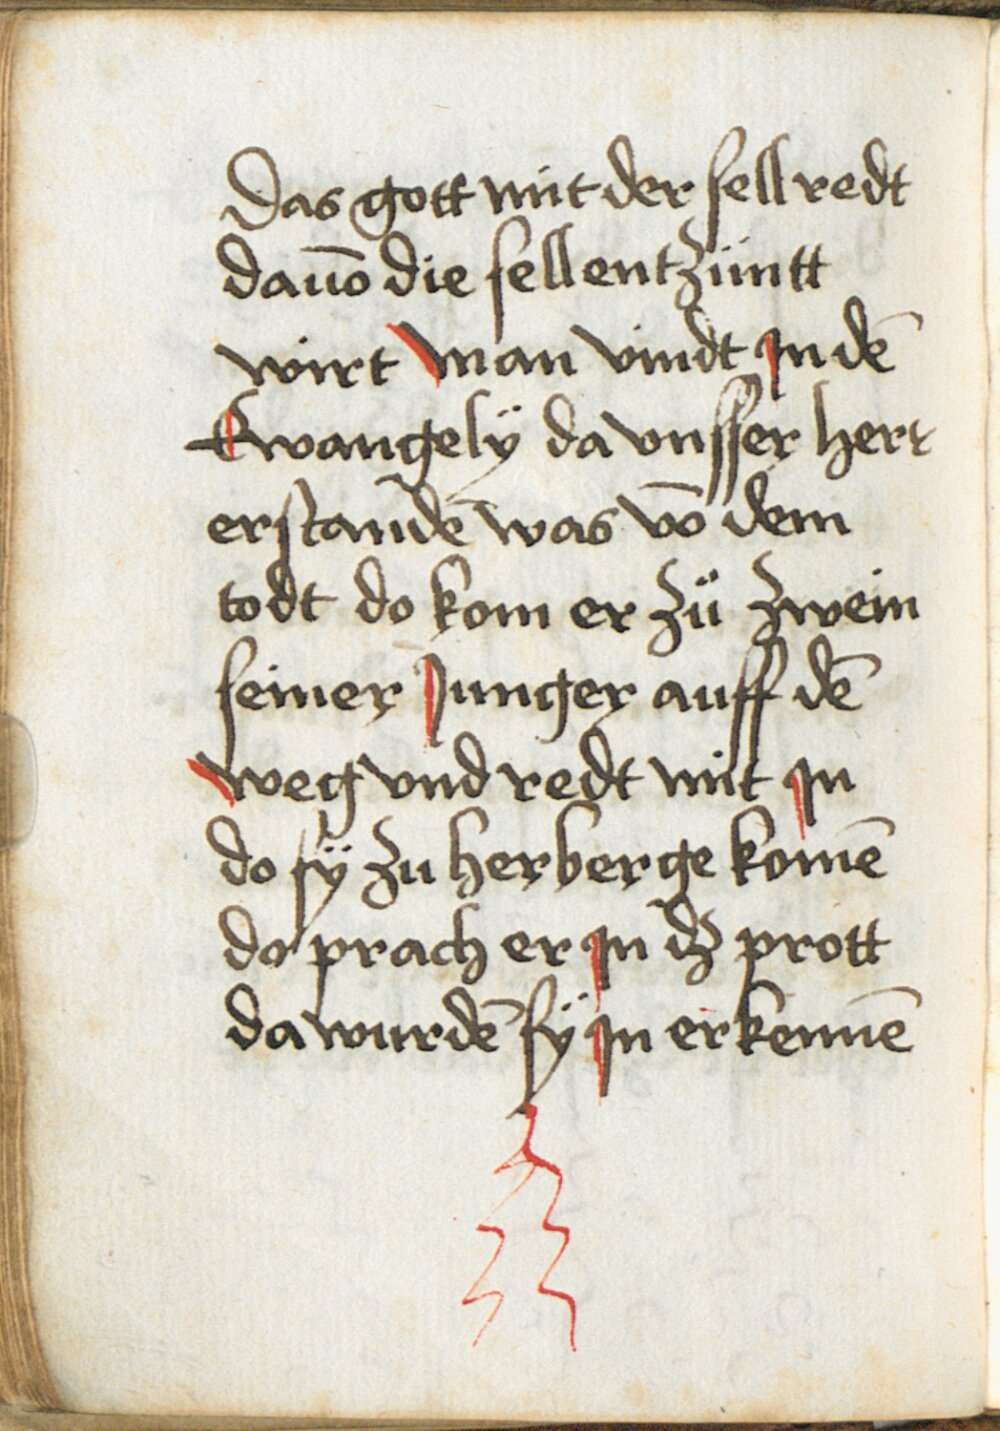 Das gott mit der sell redt
dauō die sell entzüntt
wirt Man vindt Jn dē
Ewangelÿ da vnsser herr
erstandē was vō dem
todt do kom er zů zwein
seiner Junger auff dē
weg vnd redt mit Jn
do sÿ zu herberge komē
do prach er Jn dz prott
da wurdē sÿ Jn erkennē